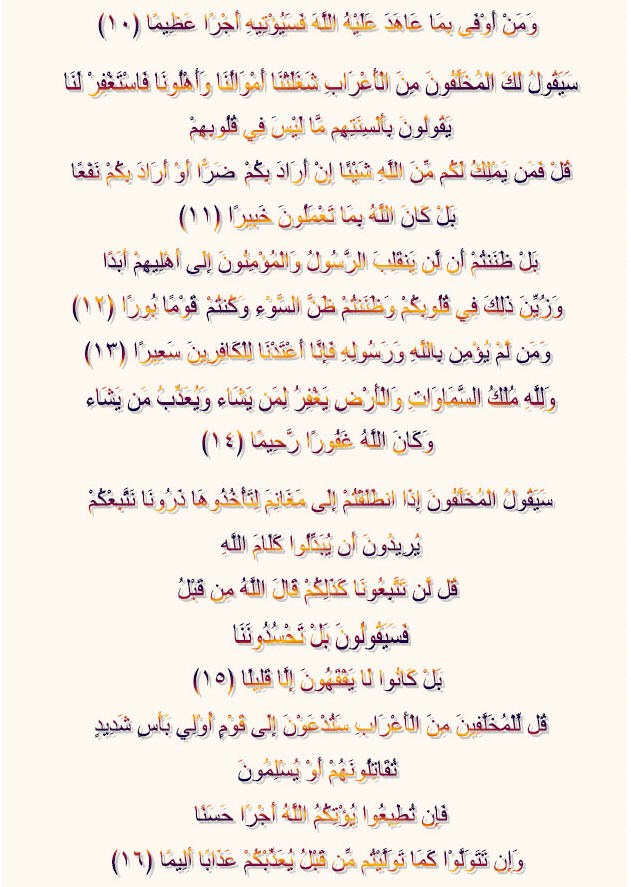 وَمَنْ أَوْفَى بِمَا عَاهَدَ عَلَيْهُ اللَّهَ فَسَيُؤْتِيهِ أَجْرًا عَظِيمًا (١٠)
سَيَقُولُ لَكَ الْمُخَلَّفُونَ مِنَ الْأَعْرَابِ شَغَلَتْنَا أَمْوَالُنَا وَأَهْلُونَا فَاسْتَغْفِرْ لَنَا
يَقُولُونَ بِأَلْسِنَتِهِم مَّا لَيْسَ فِي قُلُوبِهِمْ
قُلْ فَمَن يَمْلِكُ لَكُم مِّنَ اللَّهِ شَيْئًا إِنْ أَرَادَ بِكُمْ ضَرًّا أَوْ أَرَادَ بِكُمْ نَفْعًا
بَلْ كَانَ اللَّهُ بِمَا تَعْمَلُونَ خَبِيرًا (١١)
بَلْ ظَنَنتُمْ أَن لَّن يَنقَلِبَ الرَّسُولُ وَالْمُؤْمِنُونَ إِلَى أَهْلِيهِمْ أَبَدًا
وَزُيِّنَ ذَلِكَ فِي قُلُوبِكُمْ وَظَنَنتُمْ ظَنَّ السَّوْءِ وَكُنتُمْ قَوْمًا بُورًا (١٢)
وَمَن لَّمْ يُؤْمِن بِاللَّهِ وَرَسُولِهِ فَإِنَّا أَعْتَدْنَا لِلْكَافِرِينَ سَعِيرًا (١٣)
وَلِلَّهِ مُلْكُ السَّمَاوَاتِ وَالْأَرْضِ يَغْفِرُ لِمَن يَشَاء وَيُعَذِّبُ مَن يَشَاء
وَكَانَ اللَّهُ غَفُورًا رَّحِيمًا (١٤)
سَيَقُولُ الْمُخَلَّفُونَ إِذَا انطَلَقْتُمْ إِلَى مَغَانِمَ لِتَأْخُذُوهَا ذَرُونَا نَتَّبِعْكُمْ
يُرِيدُونَ أَن يُبَدِّلُوا كَلَامَ اللَّهِ
قُل لَّن تَتَّبِعُونَا كَذَلِكُمْ قَالَ اللَّهُ مِن قَبْلُ
فَسَيَقُولُونَ بَلْ تَحْسُدُونَنَا
بَلْ كَانُوا لَا يَفْقَهُونَ إِلَّا قَلِيلًا (١٥)
قُل لِّلْمُخَلَّفِينَ مِنَ الْأَعْرَابِ سَتُدْعَوْنَ إِلَى قَوْمٍ أُوْلِي بَأْسٍ شَدِيدٍ
تُقَاتِلُونَهُمْ أَوْ يُسْلِمُونَ
فَإِن تُطِيعُوا يُؤْتِكُمُ اللَّهُ أَجْرًا حَسَنًا
وَإِن تَتَوَلَّوْا كَمَا تَوَلَّيْتُم مِّن قَبْلُ يُعَذِّبْكُمْ عَذَابًا أَلِيمًا (١٦)